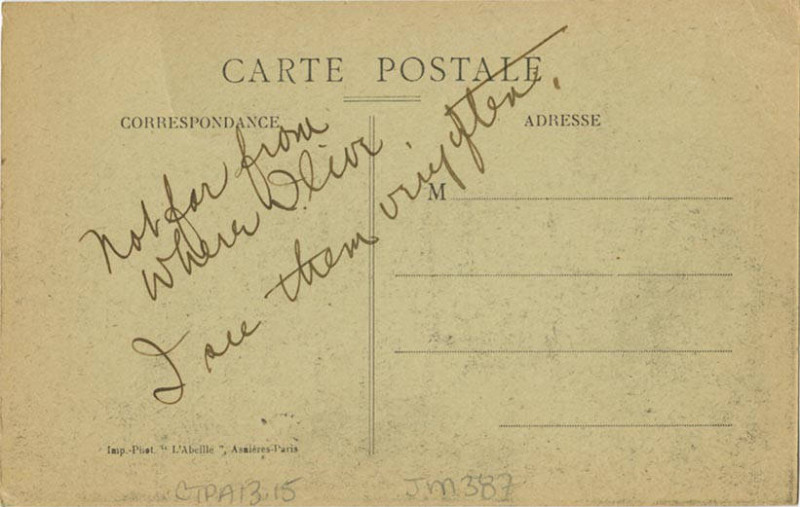 CARTE POSTALE
CORRESPONDANCE
ADRESSE
Not far from
where I live.
I see them very often.
M
Imp.-Phot. " L'Abeille ", Asnières-Paris
CTPA13.15
JM387